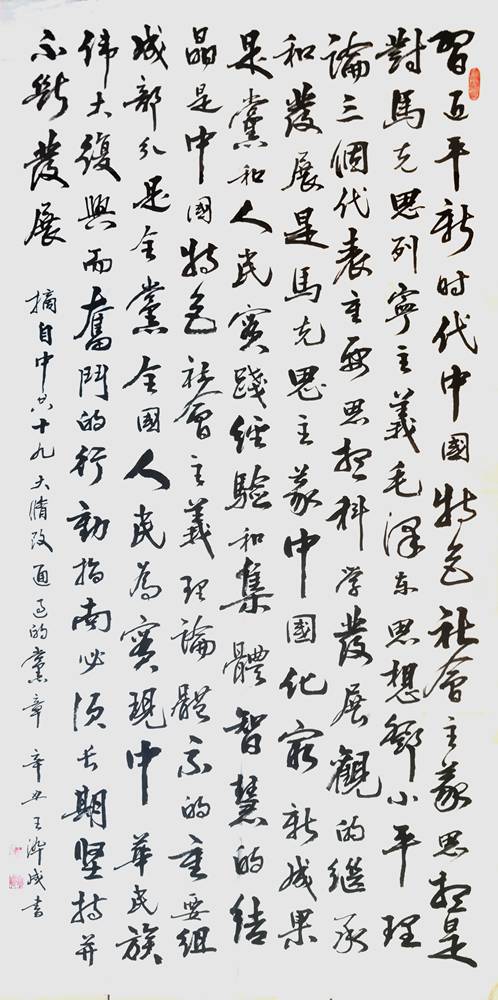 習近平新时代中國特色社會主義思想是
對馬克思列寧主義毛澤东思想鄧小平理
論三個代表重要思想科学發展觀的继承
和發展是馬克思主義中國化最新成果
是黨和人民實踐经驗和集體智慧的结
晶是中國特色社會主義理論體系的重要组
成部分是全黨全國人民為實現中華民族
伟大復興而奮鬥的行動指南必須长期堅持并
不断發展
摘自中共十九大修改通过的黨章 辛丑王
成書